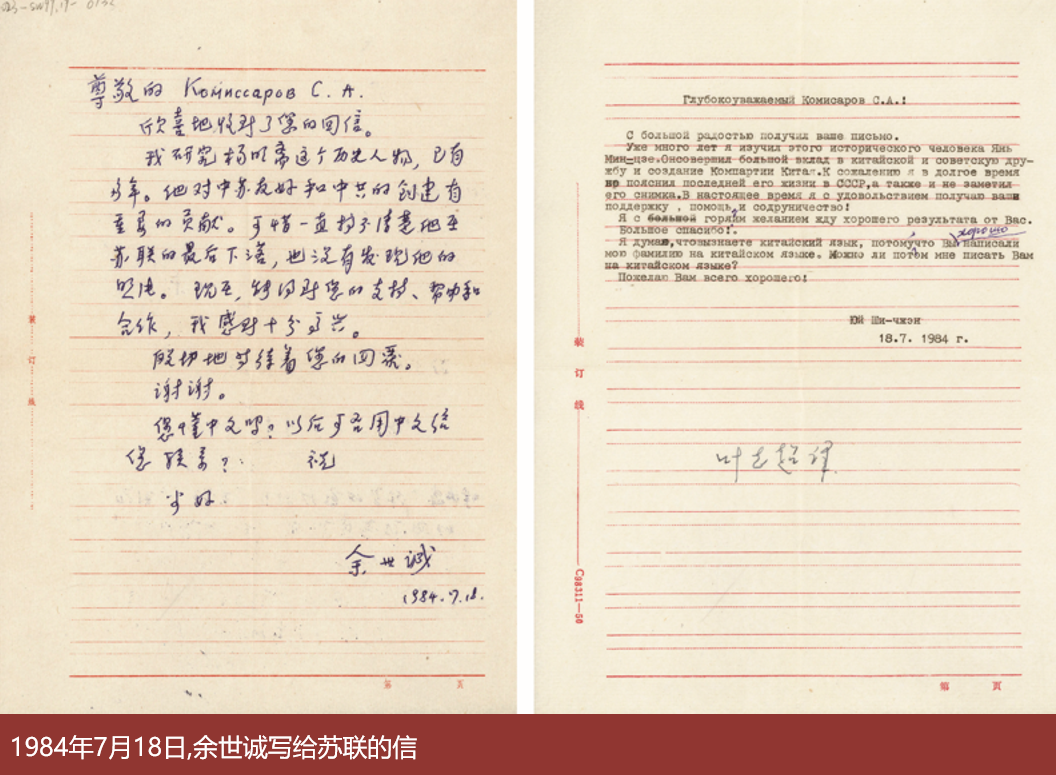 尊敬的 Комиссаров С. А.
欣喜地收到了您的回信。
我研究杨明斋这个历史人物,已有
多年。他对中苏友好和中共的创建有
重要的贡献。可惜一直搞不清楚他在
苏联的最后下落,也没有发现他的
照片。现在,能得到您的支持、帮助和
合作,我感到十分高兴。
殷切地等待着您的回音。
谢谢。
您懂中文吗?以后可否用中文给
您联系? 祝
安好
余世诚
1984.7.18.
第 页
装 订 线
Глубокоуважаемый Комисаров С.А.!
С большой радостью получил ваше письмо.
Уже много лет я изучил этого исторического человека Янь
Мин-цзе.Онсовершил большой вклад в китайской и советскую дру-
жбу и создание Компартии Китая.К сожалению я в долгое время
не пояснил последней его жизни в СССР,а также и не заметил
его снимка.В настоящее время я с удовольствием получаю ваши
поддержку , помощь и содруничество!
Я с большой горяим желанием жду хорошего результата от Вас.
Большое спасибо!.
хорошо
Я думаю,чтовызнаете китайский язык, потомучто Вы написали
мою фамилию на китайском языке. Можно ли потом мне писать Вам
на китайском языке?
Пожелаю Вам всего хорошего!
Юй Ши-чжэн
18.7. 1984 г.
装 订 线
C98311—50
第 页
1984年7月18日,余世诚写给苏联的信